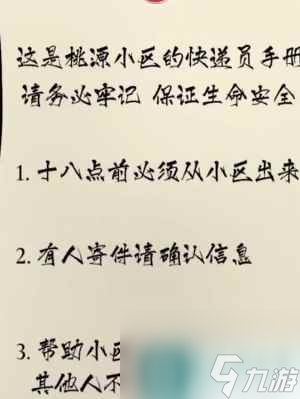 这是桃源小区的快递员手册
请务必牢记 保证生命安全
1. 十八点前必须从小区出来
2. 有人寄件请确认信息
3. 帮助小
其他人不
九游